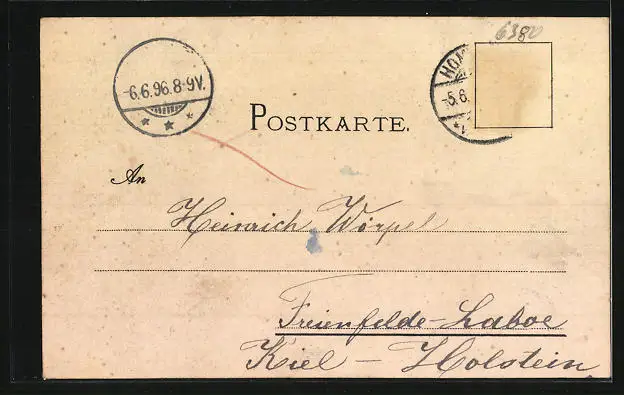 6380
HOM
-6.6.96.8-9V.
-5.6.
POSTKARTE.
An
Heinrich Wörpel
Freienfelde-Laboe
Kiel - Holstein.